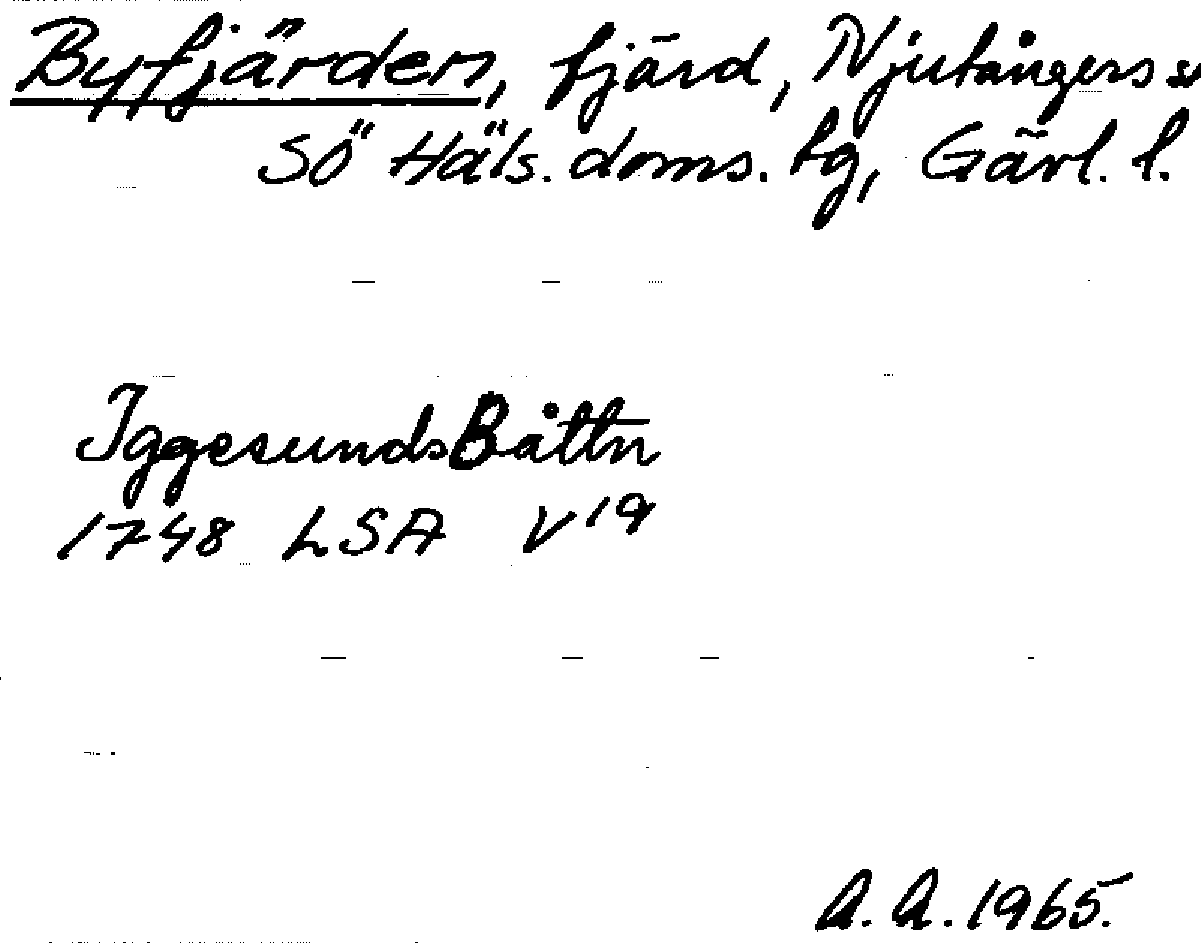 Byfjärden, fjärd, Njutångers sn
SÖ Häls. doms. lg, Gävl. l.
IggesundsBåttn
1748 LSA V19
A. A. 1965.